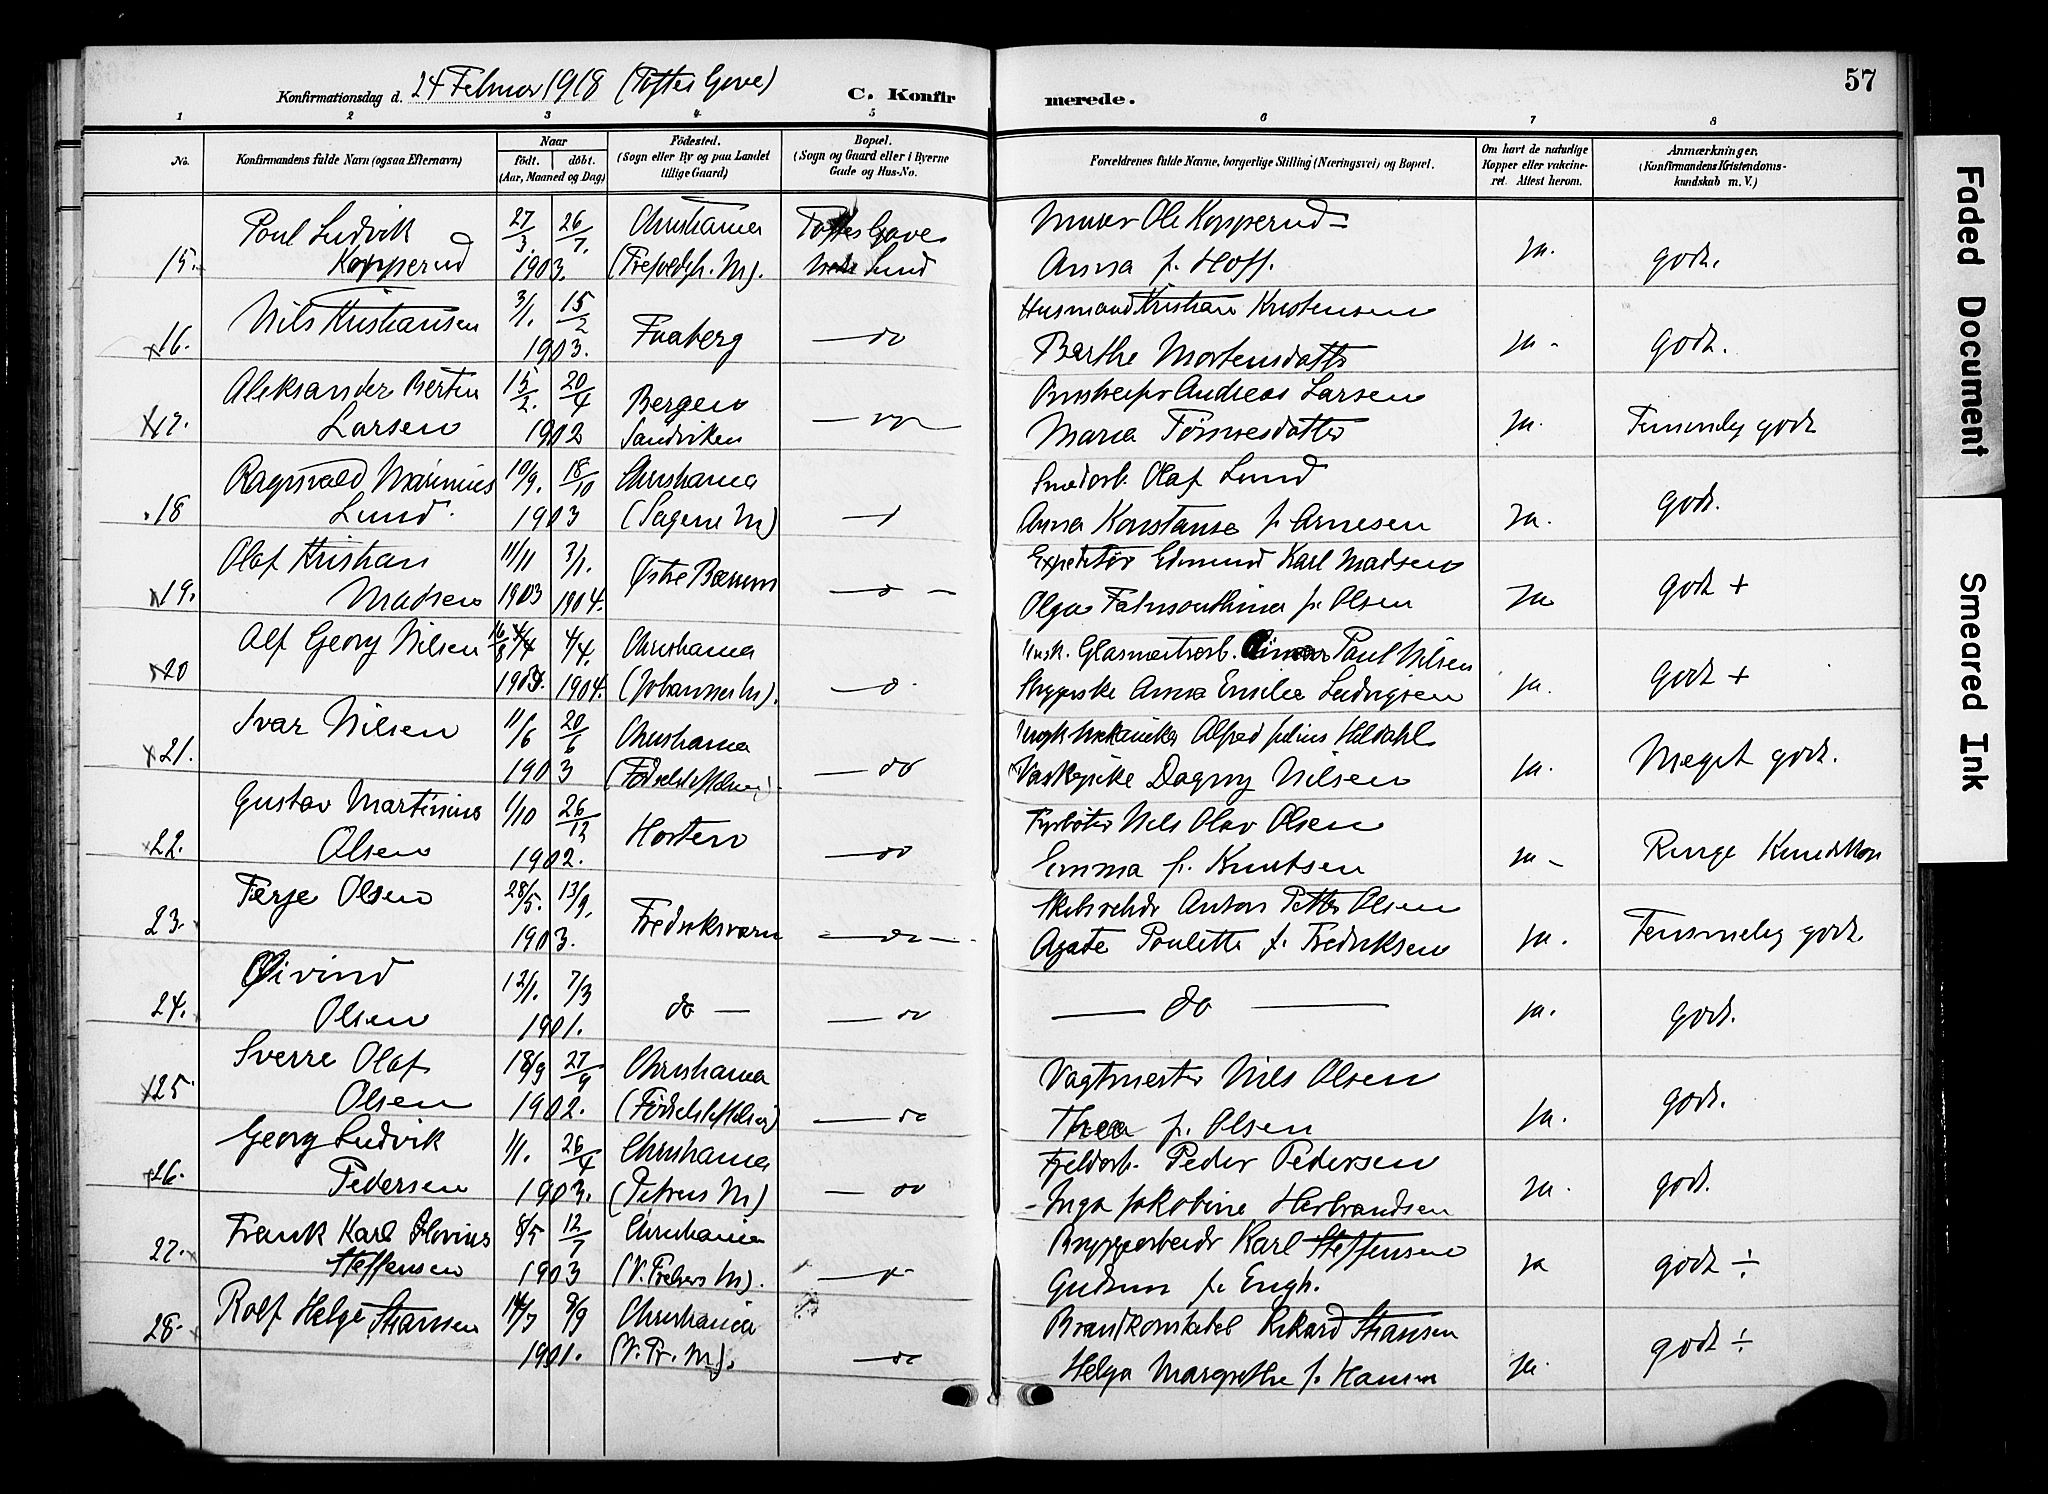 Konfirmationsdag d. 24 Februar 1918 (Toftes Gave) C. Konfirmerede. 57
1 2 3 4 5 6 7 8
No. Konfirmandens fulde Navn (ogsaa Efternavn) Naar født. døbt. (Aar, Maaned og Dag) Fødested. (Sogn eller By og paa Landet tillige Gaard) Bopæl. (Sogn og Gaard eller i Byerne Gade og Hus-No. Forældrenes fulde Navne, borgerlige Stilling (Næringsvei) og Bopæl. Om havt de naturlige Kopper eller vakcineret. Attest herom. Anmærkninger, (Konfirmandens Kristendomskundskab m. V.)
Poul Ludvik 27/3. 26/7. Christiania Toftes Gave Murer Ole Kopperud
15. Kopperud 1903. Anna f. Hoff. ja. godt.
Nils Kristiansen 3/1. 15/2 Husmand Kristian Kristensen
16. 1903. Faaberg do Barthe Mortensdatter ja godt.
Aleksander Bertin 15/2. 20/4 Bergen Andreas Larsen
17. Larsen 1902 Sandviken Maria Tømresdatter ja. Temmelig godt
Ragnvald Marinius 10/9. 18/10 Christiania Olaf Lund
18 Lund. 1903 (Sagene M) Anna Konstanse f. Arnesen ja. godt.
Olaf Kristian 11/11 3/1. Østre Bærum Expeditør Edmund Karl Madsen
19. Madsen 1903 1904. do Olga f. Olsen ja godt +
Alf Georg Nilsen 4/4. Christiania Paul Nilsen
20 1904. (Johannes M). do Anna Emilie Ludvigsen ja. godt +
Ivar Nilsen 11/6 20/6 Christiania Alfred Julius Hildahl
21. 1903 (Fødselsstiftelsen) do Dagny Nilsen ja. Meget godt.
Gustav Martinius 1/10 26/12 Horten Fyrbøter Nils Olav Olsen
22. Olsen 1902. do Emma f. Knutsen ja
Terje Olsen 28/5. 13/9. Fredriksværn Anton Petter Olsen
23. 1903. do Agate Paulette f. Fredriksen ja. Temmelig godt
Øivind 12/1. 7/3
24. Olsen 1901. do do do ja. godt.
Sverre Olaf 18/9 27/9 Christiania Vagtmester Nils Olsen
25 Olsen 1902. (Fødselsstiftelsen) do Thea f. Olsen ja. godt.
Georg Ludvik 1/1. 26/4 Christiania Peder Pedersen
26. Pedersen 1903. (Petrus M) do Inga Jakobine Herbrandsen ja. godt.
Frank Karl 8/5 12/7 Christiania Bryggearbeider Karl Steffensen
27. Steffensen 1903 do Gudrun f. Engh. ja godt ÷
Rolf Helge Stramsen 14/7 8/9 Christiania Brandkonstabel Rikard Stramsen
28. 1901. (V. Fr. M). do Helga Margrethe f. Hansen ja. godt ÷
Faded Document
Smeared Ink